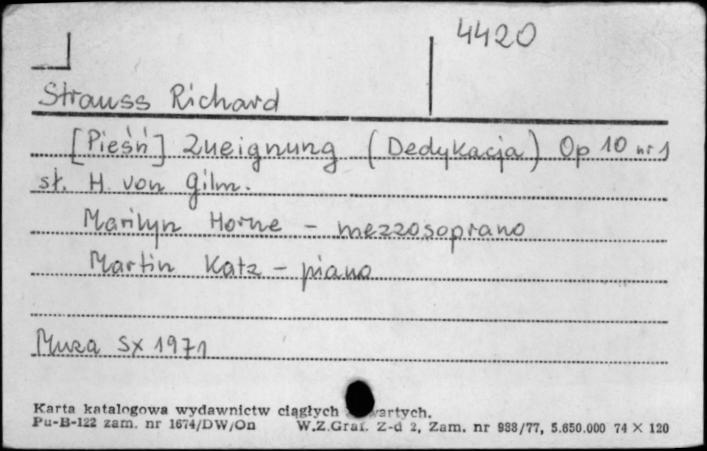 4420
Strauss Richard
[Pieśń] Zueignung (Dedykacja) Op 10 nr 1
sł. H. von Gilm.
Marilyn Horne - mezzosoprano
Martin Katz - piano
Muza SX 1971
Karta katalogowa wydawnictw ciągłych i zwartych.
Pu-B-122 zam. nr 1674/DW/On W.Z.Graf. Z-d 2, Zam. nr 988/77, 5.650.000 74 X 120